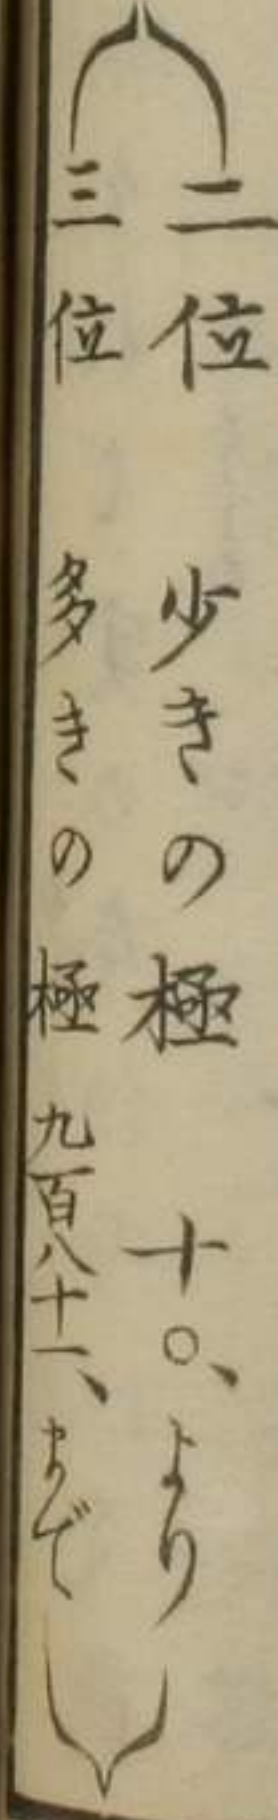 二位 少きの極 十〇、より
三位 多きの極 九百八十一、まで